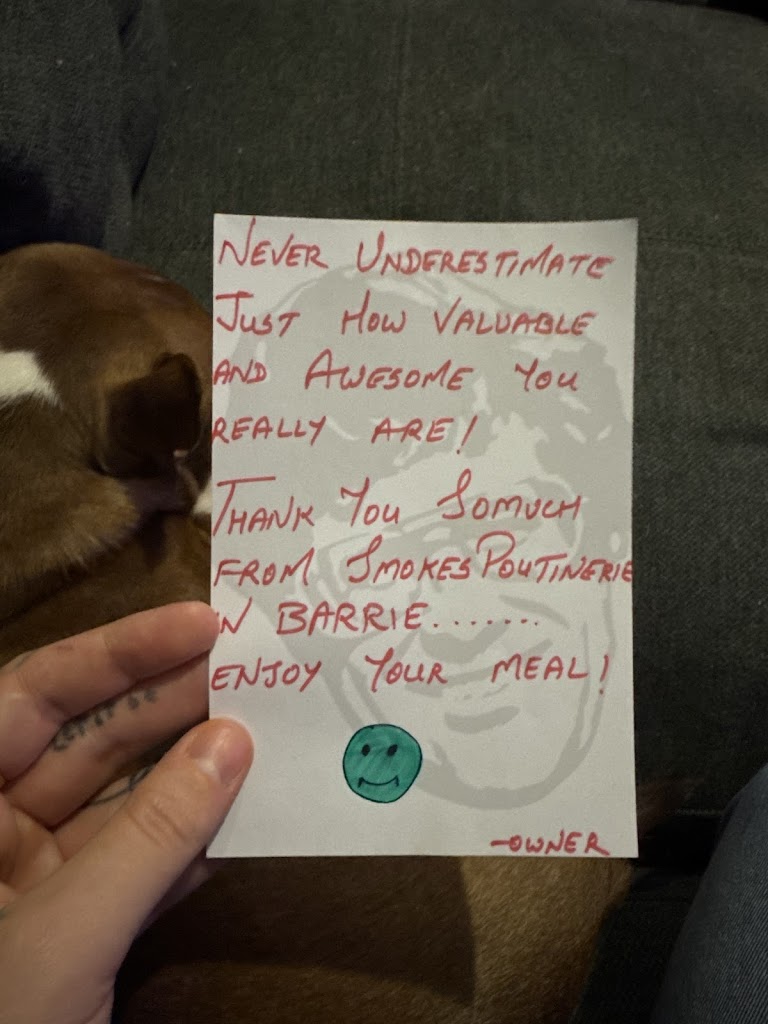 NEVER UNDERESTIMATE
JUST HOW VALUABLE
AND AWESOME YOU
REALLY ARE!
THANK YOU SOMUCH
FROM SMOKES POUTINERIE
IN BARRIE.......
ENJOY YOUR MEAL!
-OWNER